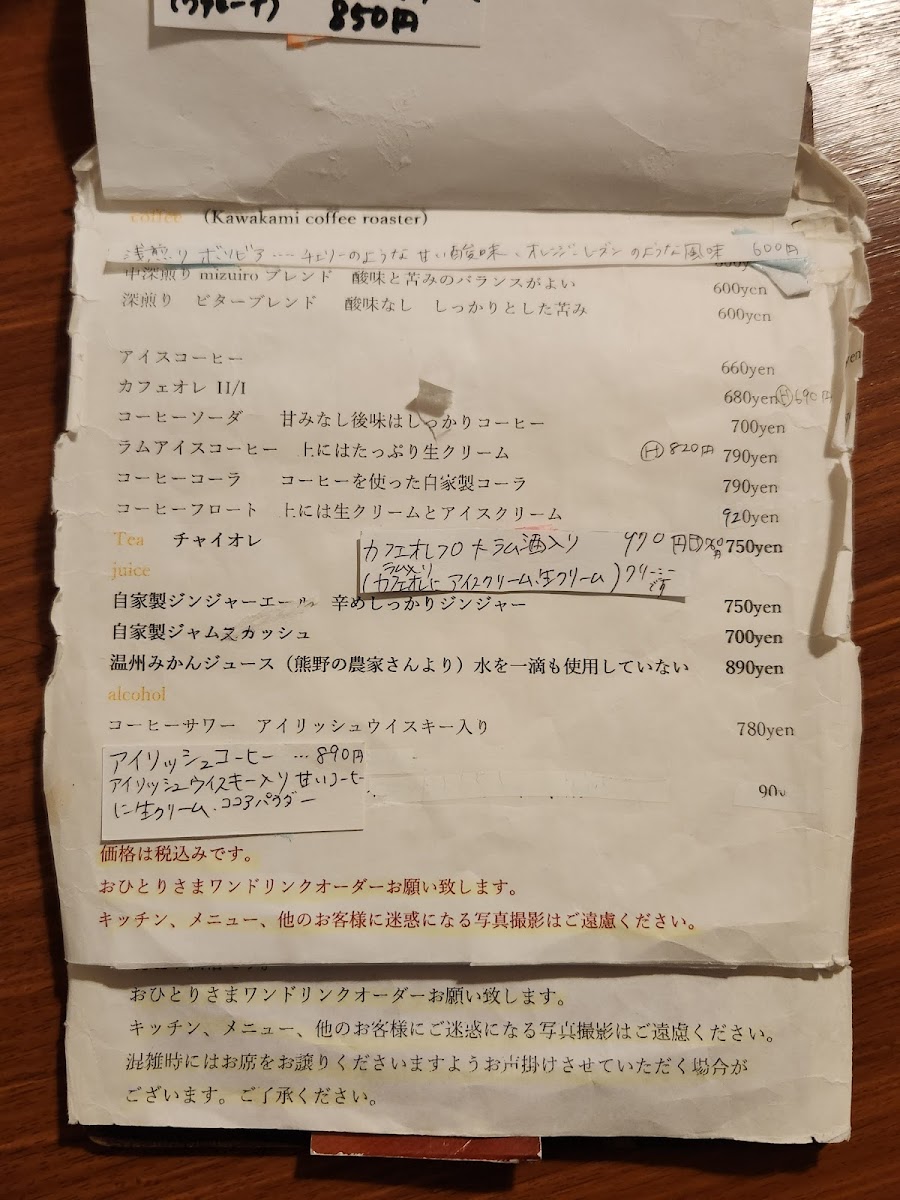 850円
coffee (Kawakami coffee roaster)
浅煎り ボリビア .... チェリーのような 甘い酸味、オレンジ・レーズン のような風味 600円
中深煎り mizuiro ブレンド 酸味と苦みのバランスがよい 600yen
深煎り ビターブレンド 酸味なし しっかりとした苦み 600yen
アイスコーヒー 660yen
カフェオレ II/I 680yen Ⓗ690円
コーヒーソーダ 甘みなし後味はしっかりコーヒー 700yen
ラムアイスコーヒー 上にはたっぷり生クリーム Ⓗ820円 790yen
コーヒーコーラ コーヒーを使った自家製コーラ 790yen
コーヒーフロート 上には生クリームとアイスクリーム 920yen
Tea チャイオレ 750yen
カフェオレフロート ラム酒入り 970円
(カフェオレに アイスクリーム、生クリーム)
ラム入り
juice
自家製ジンジャーエール 辛めしっかりジンジャー 750yen
自家製ジャムスカッシュ 700yen
温州みかんジュース（熊野の農家さんより）水を一滴も使用していない 890yen
alcohol
コーヒーサワー アイリッシュウイスキー入り 780yen
アイリッシュコーヒー …890円
アイリッシュウイスキー入り 甘いコーヒー
に生クリーム、ココアパウダー
価格は税込みです。
おひとりさまワンドリンクオーダーお願い致します。
キッチン、メニュー、他のお客様に迷惑になる写真撮影はご遠慮ください。
おひとりさまワンドリンクオーダーお願い致します。
キッチン、メニュー、他のお客様にご迷惑になる写真撮影はご遠慮ください。
混雑時にはお席をお譲りくださいますようお声掛けさせていただく場合が
ございます。ご了承ください。